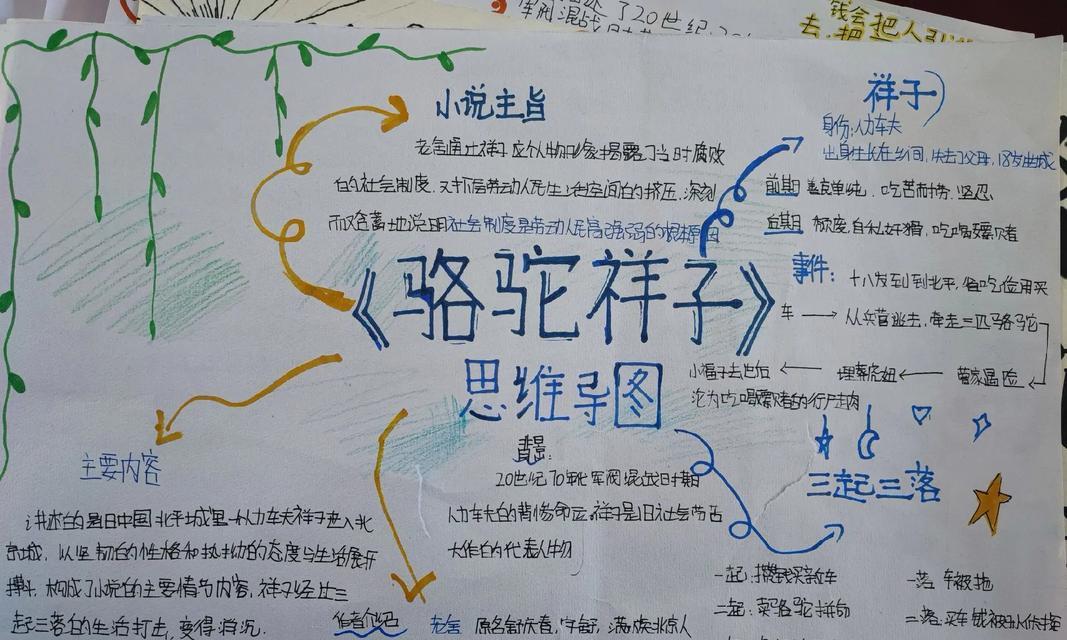 钱会把人引
去,把
了20世纪
军阀混战
小说主旨
老舍通过祥子这个人物形象揭露了当时腐败
的社会制度,对下层劳动人民生活空间的挤压,深刻
而又含蓄地说明社会制度是劳动人民
的根本原因
祥子
身份:人力车夫
出身:生长在乡间,失去了父母,18岁出城
前期 善良单纯,吃苦耐劳,坚忍
后期 颓废,自私好猾,吃喝嫖赌者
事件: 十八岁到北平,省吃俭用买
车 → 从兵营逃去,牵走三匹骆驼
小福子去世后 ← 埋葬虎妞 ← 曹家遇险
沦为吃喝嫖赌的行尸走肉
《骆驼祥子》
思维导图
背景:
20世纪
军阀混战时期
人力车夫的背惨命运。祥子是旧社会劳苦
大作的代表人物
主要内容
讲述的是旧中国北平城里一个人力车夫祥子进入北
京城,以坚韧的性格和执拗的态度与生活展开
搏斗,构成了小说的主要情节内容,祥子经过三
起三落的生活打击,变得消沉.
作者介绍
老舍 原名舒庆春,字舍予,满族北京人
三起三落
一起:攒钱买新车
一落:车被抢
二起:卖骆驼拼命
二落:买车钱被孙侦探